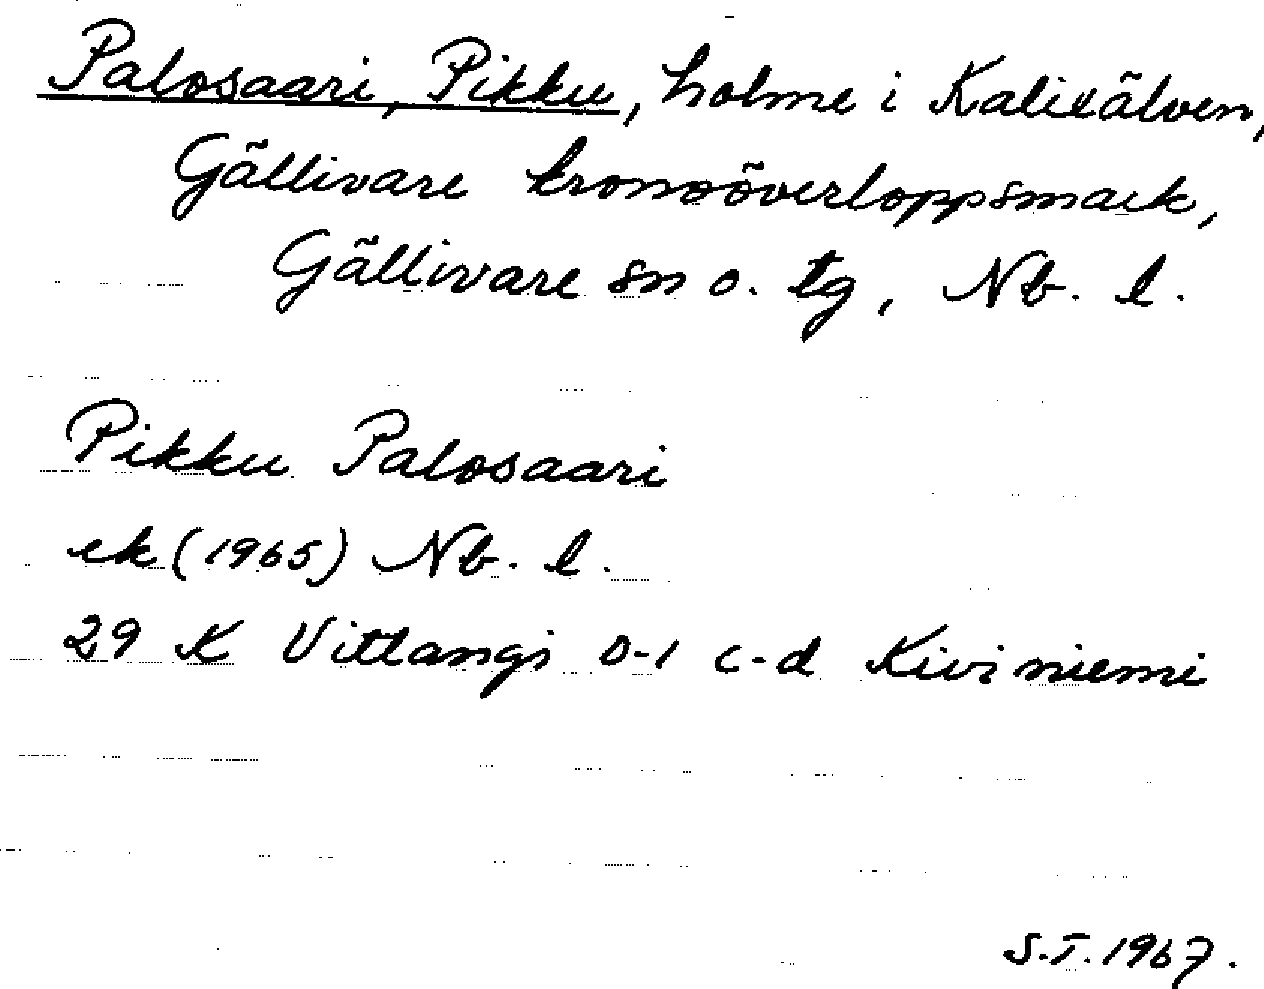 Palosaari, Pikku, holme i Kalixälven,
Gällivare kronoöverloppsmark,
Gällivare sn o. tg, Nb. l.
Pikku Palosaari
ek (1965) Nb. l.
29 K Vittangi 0-1 c-d Kiviniemi
S.T. 1967.